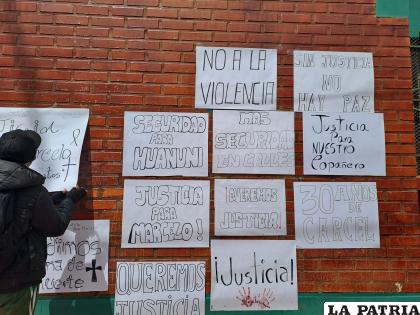 NO A LA
VIOLENCIA
SIN JUSTICIA
NO
HAY PAZ
SEGURIDAD
PARA
HUANUNI
MAS
SEGURIDAD
EN CALLES
Justicia
Para
NUESTRO
Compañero
JUSTICIA
PARA
MARCELO!
¡QUEREMOS
JUSTICIA!
30 AÑOS DE
CARCEL
QUEREMOS
JUSTICIA
¡Justicia!
LA PATRIA